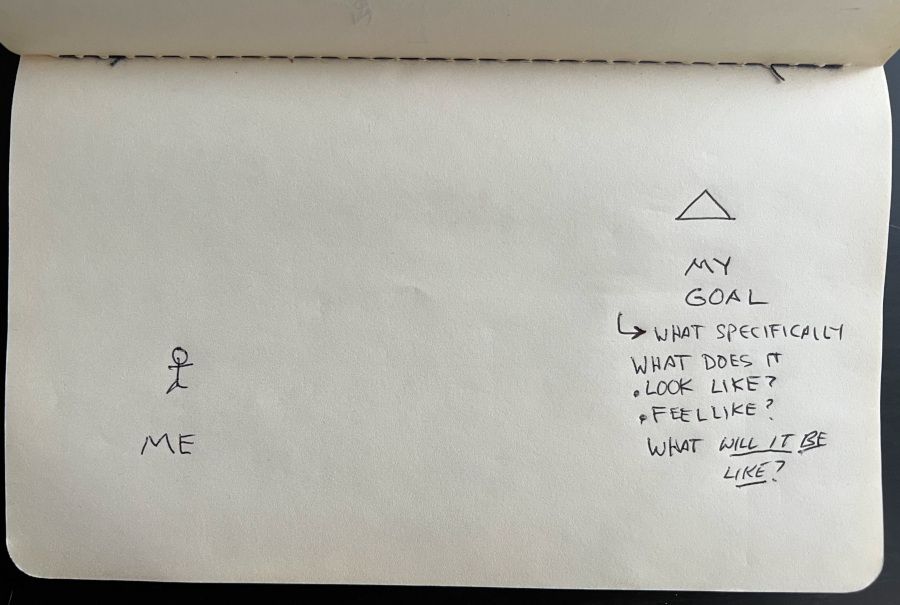 ME
MY
GOAL
WHAT SPECIFICALLY
WHAT DOES IT
. LOOK LIKE?
. FEEL LIKE?
WHAT WILL IT BE
LIKE?